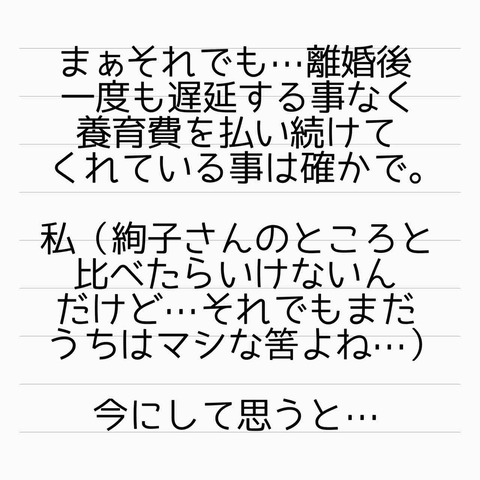 まぁそれでも…離婚後
一度も遅延する事なく
養育費を払い続けて
くれている事は確かで。
私（絢子さんのところと
比べたらいけないん
だけど…それでもまだ
うちはマシな筈よね…）
今にして思うと…